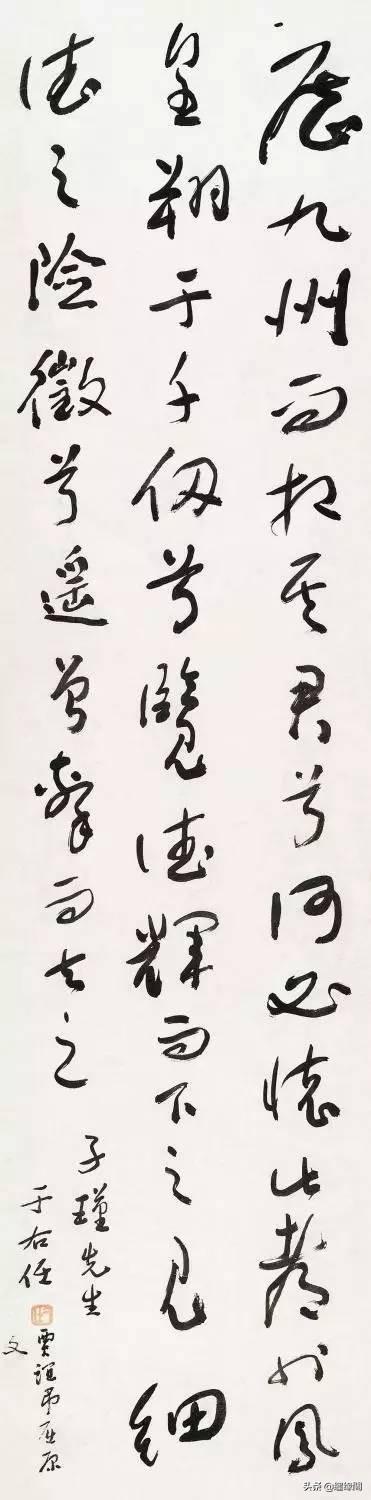 歷九州而相其君兮何必懷此都也鳳
皇翔于千仞兮覽德輝而下之見細
德之險徵兮遙曾擊而去之
子瑾先生
于右任
賈誼弔屈原
文
头条 @